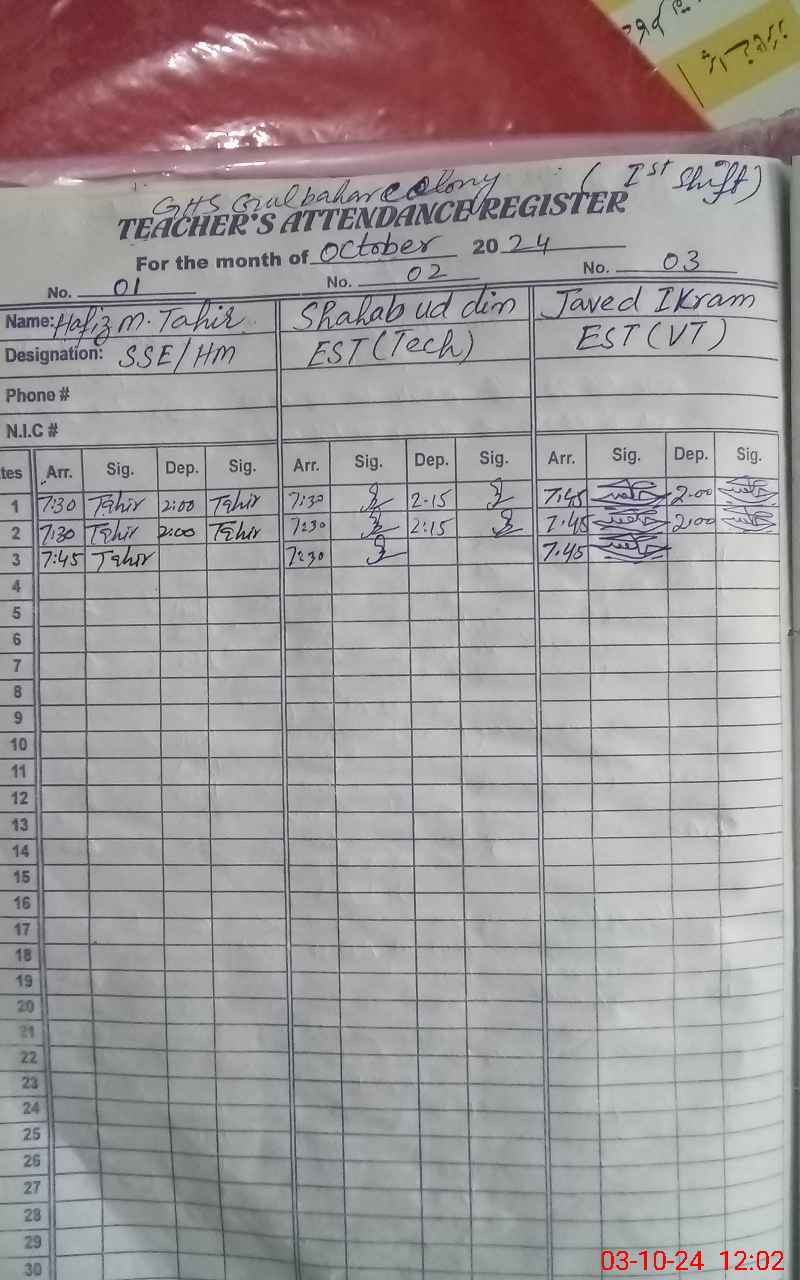 GHS Gulbahar colony (Ist Shift)
TEACHER'S ATTENDANCE REGISTER
For the month of October 2024
No. 01 No. 02 No. 03
Name: Hafiz M. Tahir Shahab ud din Javed IKram
Designation: SSE/HM EST (Tech) EST (VT)
Phone #
N.I.C #
tes Arr. Sig. Dep. Sig. Arr. Sig. Dep. Sig. Arr. Sig. Dep. Sig.
1 7:30 Tahir 2:00 Tahir 7:30 2-15 7:45 2:00
2 7:30 Tahir 2:00 Tahir 7:30 2:15 7:45 2:00
3 7:45 Tahir 7:30 7:45
4
5
6
7
8
9
10
11
12
13
14
15
16
17
18
19
20
21
22
23
24
25
26
27
28
29
30
03-10-24 12:02